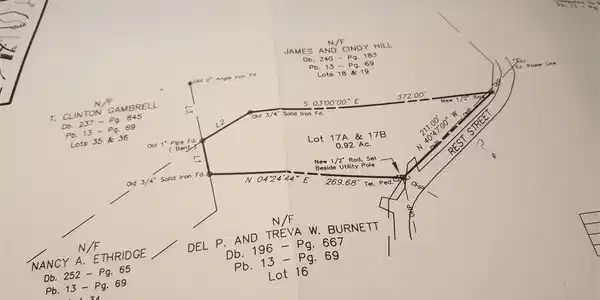 N/F
JAMES AND CINDY HILL
Db. 240 - Pg. 183
Pb. 13 - Pg. 69
Lots 18 & 19
Old 2" Angle Iron Fd.
N/F
T. CLINTON GAMBRELL
Db. 237 - Pg. 845
Pb. 13 - Pg. 69
Lots 35 & 36
L2
Old 3/4" Solid Iron Fd.
S 03°00'00" E 372.00'
New 1/2" Rod
Ex. Power Line
Old 1" Pipe Fd.
( Bent )
L1
Lot 17A & 17B
0.92 Ac.
211.00'
N 40°47'90" W
REST STREET
New 1/2" Rod, Set
Beside Utility Pole
Old 3/4" Solid Iron Fd.
N 04°24'44" E 269.68'
Tel. Ped.
N/F
DEL P. AND TREVA W. BURNETT
Db. 196 - Pg. 667
Pb. 13 - Pg. 69
Lot 16
N/F
NANCY A. ETHRIDGE
Db. 252 - Pg. 65
Pb. 13 - Pg. 69